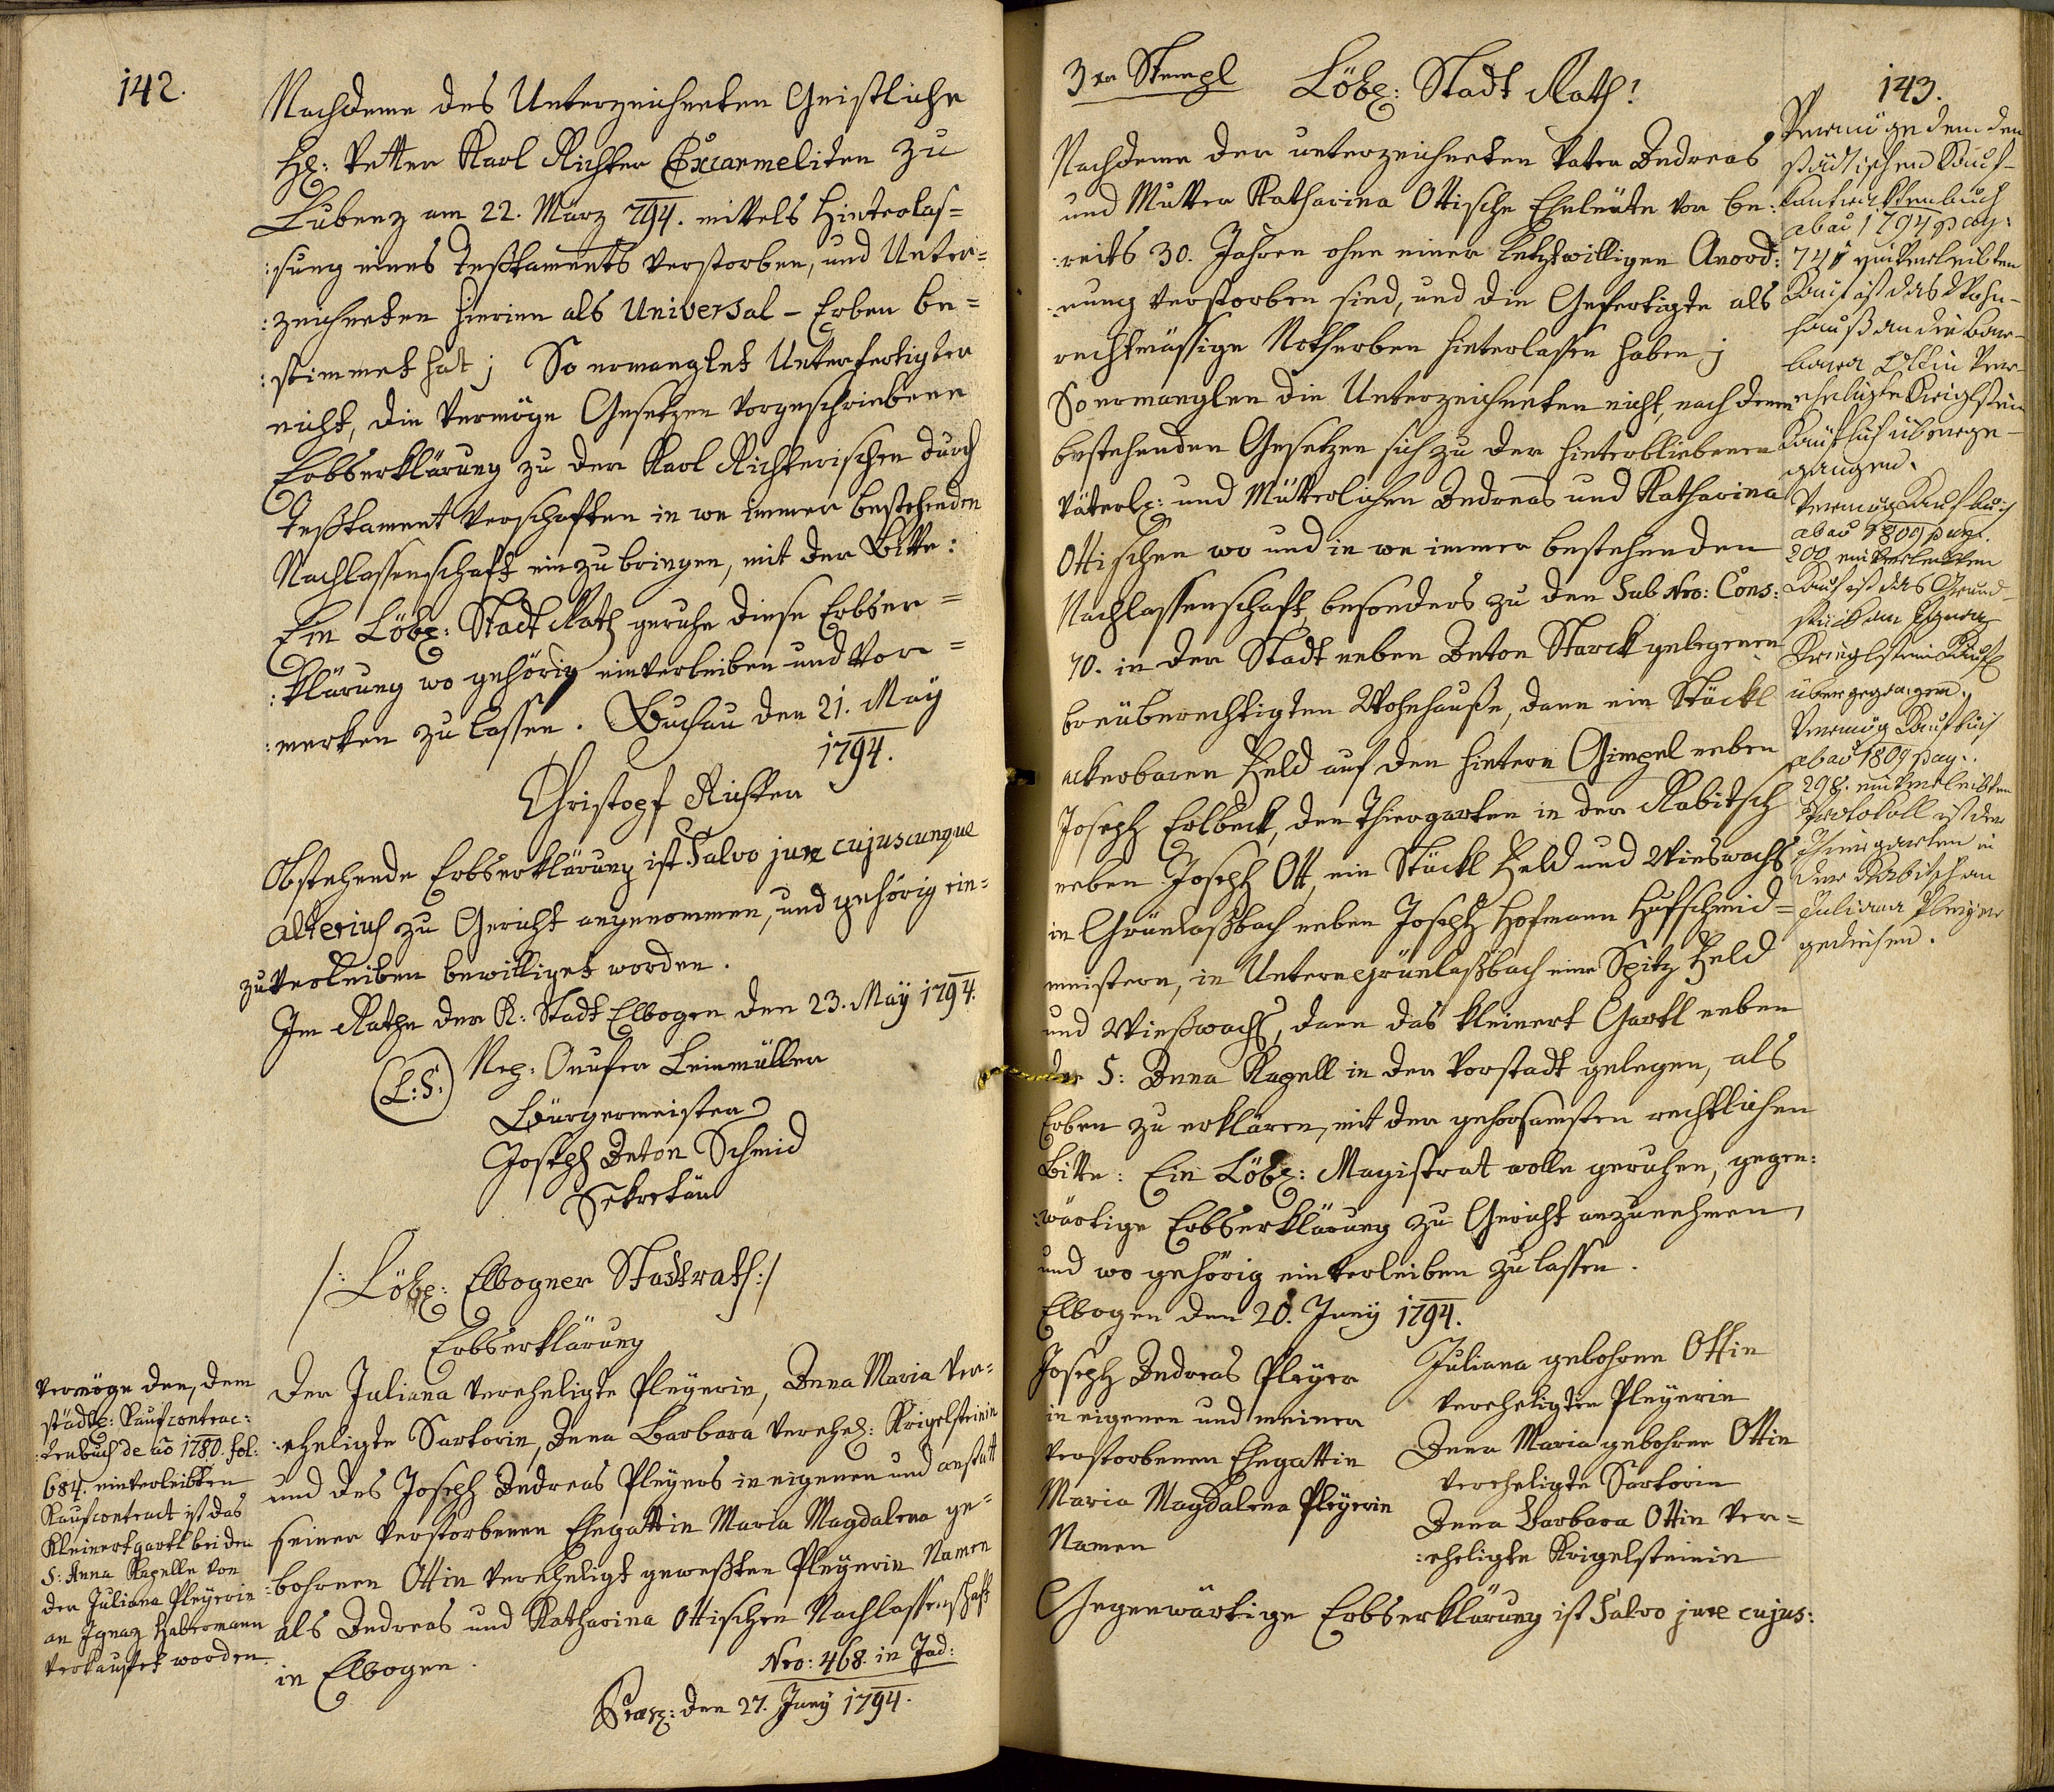 142.
Nachdeme des Unterzeichneten Geistliche
H: Vetter Karl Richter Excarmeliten zu
Lubenz am 22. März 794. mittels Hinterlas=
:sung eines Testtaments verstorben, und Unter=
:zeichneten hierinn als Universal-Erben be=
:stimmet hat; So ermanglet Unterfertigter
nicht, die vermöge Gesetzen vorgeschriebene
Erbserklärung zu der Karl Richterischen durch
Testtament verschaften in we immer bestehenden
Nachlassenschaft einzubringen, mit der Bitte:
Ein Löbl: Stadt Rath geruhe diese Erbser=
:klärung wo gehörig einverleiben und Vor=
:merken zu lassen. Buchau den 21. May
1794.
Christopf Richter
Obstehende Erbserklärung ist Salvo jure cujuscunque
alterius zu Gericht angenommen, und gehörig ein=
zuverleiben bewilliget worden.
Im Rathe der K: Stadt Elbogen den 23. May 1794.
(L:S:) Nep: Onufer Leinmüller
Bürgermeister
Joseph Anton Schmid
Sekretär
/: Löbl: Elbogner Stadtrath :/
Erbserklärung
Der Juliana vereheligte Pleyerin, Anna Maria ver=
:eheligte Sartorin, Anna Barbara verehel: Krigelsteinin
und des Joseph Andreas Pleyers in eigenen und anstatt
seiner verstorbenen Ehegattin Maria Magdalena ge=
:bohrnen Ottin vereheligt gewesten Pleyerin Namen
als Andreas und Katharina Ottischen Nachlassenschaft
in Elbogen.
Nro: 468. in Jud:
Praes: den 27. Juny 1794.
Vermöge den, dem
städtl: Kaufcontrac:
:tenbuch de ao 1780. fol:
684. einverleibten
Kaufcontract ist das
Kleinertgartl bei der
S: Anna Kapelle von
der Juliana Pleyerin
an Ignaz Habermann
verkaufet worden.
143.
3 xr Stempl Löbl: Stadt Rath!
Nachdeme der unterzeichneten Vater Andreas
und Mutter Katharina Ottische Eheleute vor be:
:reits 30. Jahren ohne einer Letztwilligen Anord:
:nung verstorben sind, und die Gefertigte als
rechtmässige Notherben hinterlassen haben;
So ermanglen die Unterzeichneten nicht, nach denen
bestehenden Gesetzen sich zu der hinterbliebenen
Väterl: und Mütterlichen Andreas und Katharina
Ottischen wo und in we immer bestehenden
Nachlassenschaft, besonders zu den Sub Nro: Cons:
70. in der Stadt neben Anton Starck gelegenen
breüberechtigten Wohnhauße, dann ein Stückl
ackerbaren Feld auf den hintern Gimpel neben
Joseph Erlbeck, den Thiergarten in der Rabitsch
neben Joseph Ott, ein Stückl Feld und Wieswachs
in Grünlaßbach neben Joseph Hofmann Hufschmid=
meistern, in Untern Grünlaßbach eine Spitz Feld
und Wießwachs, dann das kleinert Gartl neben
der S: Anna Kapell in der Vorstadt gelegen, als
Erben zu erklären, mit der gehorsamsten rechtlichen
Bitte: Ein Löbl: Magistrat wolle geruhen, gegen:
:wärtige Erbserklärung zu Gericht anzunehmen,
und wo gehörig einverleiben zu lassen.
Elbogen den 20. Juny 1794.
Joseph Andreas Pleyer
in eigenen und meiner
verstorbenen Ehegattin
Maria Magdalena Pleyerin
Namen
Juliana gebohrne Ottin
verehligte Pleyerin
Anna Maria gebohrne Ottin
vereheligte Sartorin
Anna Barbara Ottin ver=
:eheligte Krigelsteinin
Gegenwärtige Erbserklärung ist Salvo jure cujus:
Vermöge dem den
städtischen Kauf-
Kontracktenbuch
ab ao 1794 pag:
741 einverleibten
Kauf ist das Wohn-
hauß an die Bar-
bara Ottin ver-
ehelichte Krieglstein
Käuflich überge-
gangen.
Vermög Kaufbuch
ab ao 1809 pag.
200 einverleibten
Kauf ist das Grund-
stück am Ignaz
Krieglstein Käufl
übergegangen.
Vermög Kaufbuch
ab ao 1809 pag.
298. einverleibten
Protokoll ist der
Thiergarten in
der Rabitsch an
Juliana Pleyer
gediehen.